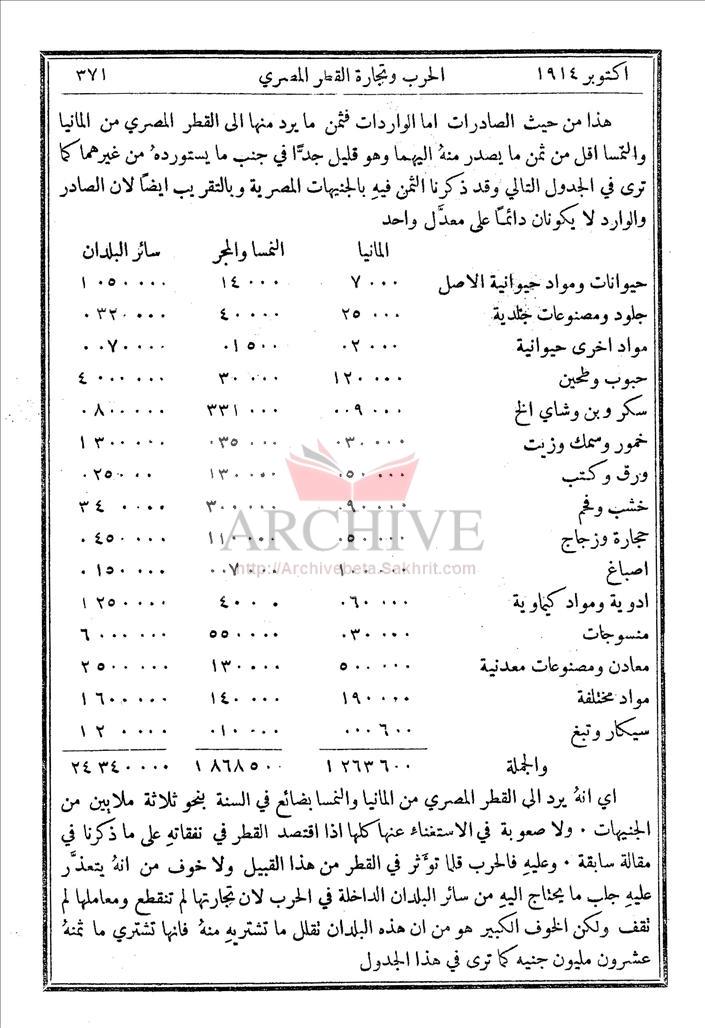 اكتوبر ١٩١٤ الحرب وتجارة القطر المصري ٣٧١
هذا من حيث الصادرات اما الواردات فثمن ما يرد منها الى القطر المصري من المانيا
والنمسا اقل من ثمن ما يصدر منهُ اليهما وهو قليل جدًّا في جنب ما يستوردهُ من غيرهما كما
ترى في الجدول التالي وقد ذكرنا الثمن فيهِ بالجنيهات المصرية وبالتقريب ايضًا لان الصادر
والوارد لا يكونان دائمًا على معدَّل واحد
المانيا النمسا والمجر سائر البلدان
حيوانات ومواد حيوانية الاصل ٧٠٠٠ ١٤٠٠٠ ١٠٥٠٠٠٠
جلود ومصنوعات جلدية ٢٥٠٠٠ ٤٠٠٠٠ ٠٣٢٠٠٠٠
مواد اخرى حيوانية ٠٢٠٠٠ ٠١٥٠٠ ٠٠٧٠٠٠٠
حبوب وطحين ١٢٠٠٠٠ ٣٠٠٠٠ ٤٠٠٠٠٠٠
سكر وبن وشاي الخ ٠٠٩٠٠٠ ٣٣١٠٠٠ ٠٨٠٠٠٠٠
خمور وسمك وزيت ٠٣٠٠٠٠ ٠٣٥٠٠٠ ١٣٠٠٠٠٠
ورق وكتب ٠٥٠٠٠٠ ١٣٠٠٠٠ ٠٢٥٠٠٠٠
خشب وفحم ٠٩٠٠٠٠ ٣٠٠٠٠٠ ٣٤٠٠٠٠٠
حجارة وزجاج ٠٥٠٠٠٠ ١١٠٠٠٠ ٠٤٥٠٠٠٠
اصباغ ١٠٠٠٠٠ ٠٠٧٠٠٠ ٠١٥٠٠٠٠
ادوية ومواد كيماوية ٠٦٠٠٠٠ ٤٠٠٠٠ ١٢٥٠٠٠٠
منسوجات ٠٣٠٠٠٠ ٥٥٠٠٠٠ ٦٠٠٠٠٠٠
معادن ومصنوعات معدنية ٥٠٠٠٠٠ ١٣٠٠٠٠ ٢٥٠٠٠٠٠
مواد مختلفة ١٩٠٠٠٠ ١٤٠٠٠٠ ١٦٠٠٠٠٠
سيكار وتبغ ٠٠٠٦٠٠ ٠١٠٠٠٠ ١٢٠٠٠٠٠
والجملة ١٢٦٣٦٠٠ ١٨٦٨٥٠٠ ٢٤٣٤٠٠٠٠
اي انهُ يرد الى القطر المصري من المانيا والنمسا بضائع في السنة بنحو ثلاثة ملايين من
الجنيهات ٠ ولا صعوبة في الاستغناء عنها كلها اذا اقتصد القطر في نفقاتهِ على ما ذكرنا في
مقالة سابقة ٠ وعليهِ فالحرب قلما تؤثر في القطر من هذا القبيل ولا خوف من انهُ يتعذَّر
عليهِ جلب ما يحتاج اليهِ من سائر البلدان الداخلة في الحرب لان تجارتها لم تنقطع ومعاملها لم
تقف ولكن الخوف الكبير هو من ان هذه البلدان تقلل ما تشتريهِ منهُ فانها تشتري ما ثمنهُ
عشرون مليون جنيه كما ترى في هذا الجدول
ARCHIVE
http://Archivebeta.Sakhrit.com